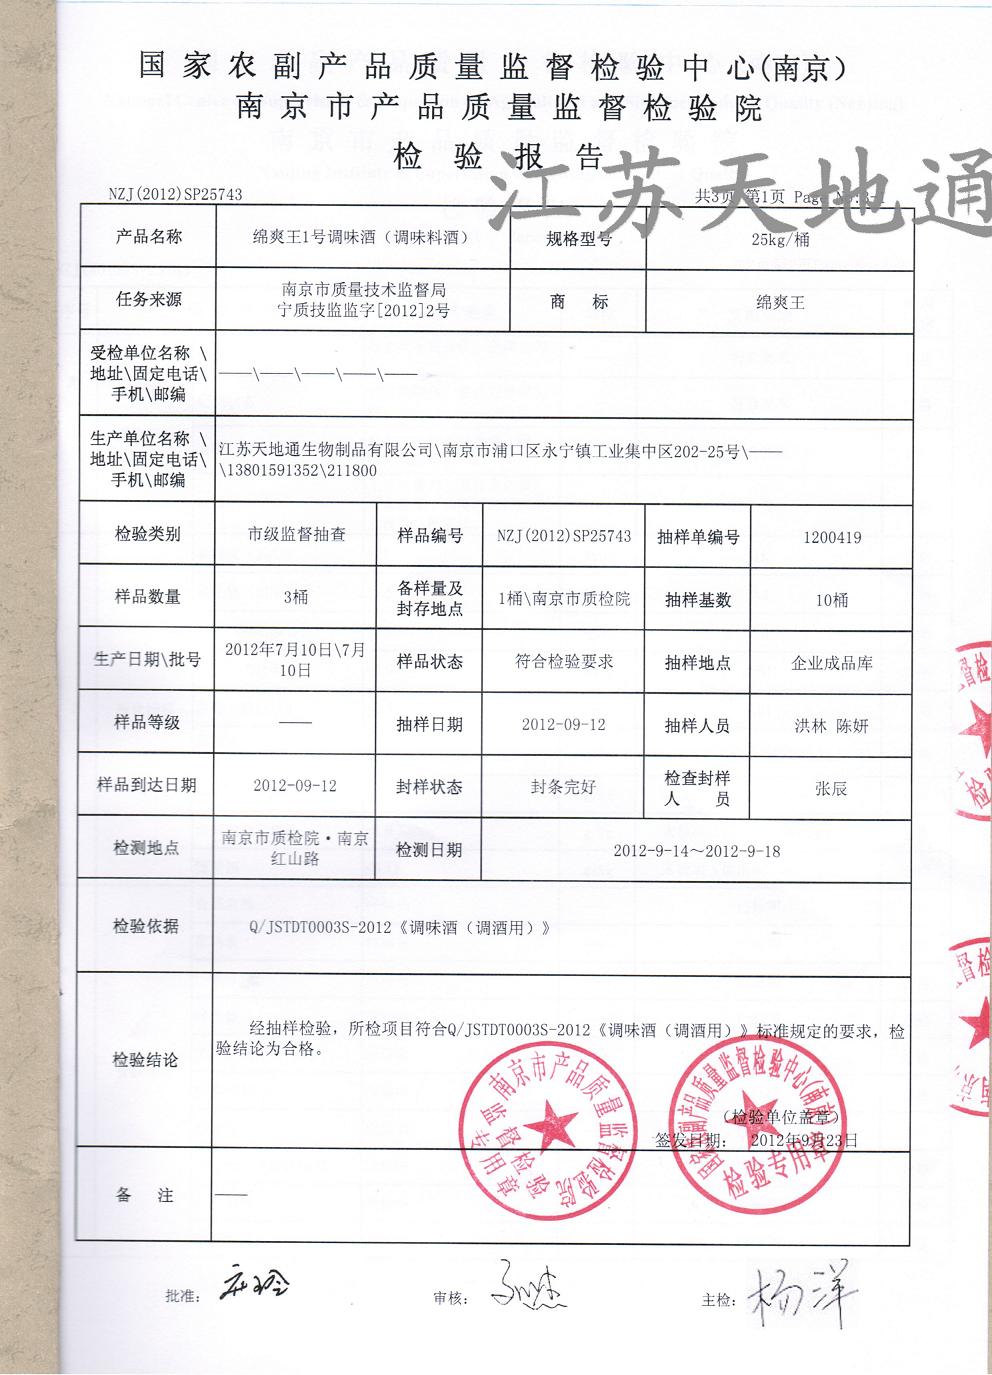 国家农副产品质量监督检验中心(南京)
南京市产品质量监督检验院
检验报告
江苏天地通
NZJ(2012)SP25743
共3页 第1页 Page
产品名称 绵爽王1号调味酒（调味料酒） 规格型号 25kg/桶
任务来源 南京市质量技术监督局 宁质技监监字[2012]2号 商 标 绵爽王
受检单位名称 \
地址\固定电话\
手机\邮编
——\——\——\——\——
生产单位名称 \
地址\固定电话\
手机\邮编
江苏天地通生物制品有限公司\南京市浦口区永宁镇工业集中区202-25号\——
\13801591352\211800
检验类别 市级监督抽查 样品编号 NZJ(2012)SP25743 抽样单编号 1200419
样品数量 3桶 备样量及封存地点 1桶\南京市质检院 抽样基数 10桶
生产日期\批号 2012年7月10日\7月10日 样品状态 符合检验要求 抽样地点 企业成品库
样品等级 —— 抽样日期 2012-09-12 抽样人员 洪林 陈妍
样品到达日期 2012-09-12 封样状态 封条完好 检查封样人 员 张辰
检测地点 南京市质检院·南京红山路 检测日期 2012-9-14～2012-9-18
检验依据 Q/JSTDT0003S-2012《调味酒（调酒用）》
检验结论
经抽样检验，所检项目符合Q/JSTDT0003S-2012《调味酒（调酒用）》标准规定的要求，检
验结论为合格。
（检验单位盖章）
签发日期： 2012年9月23日
南京市产品质量监督检验院
监督检验专用章
国家农副产品质量监督检验中心(南京)
检验专用章
备 注 ——
批准：
审核：
主检： 杨洋